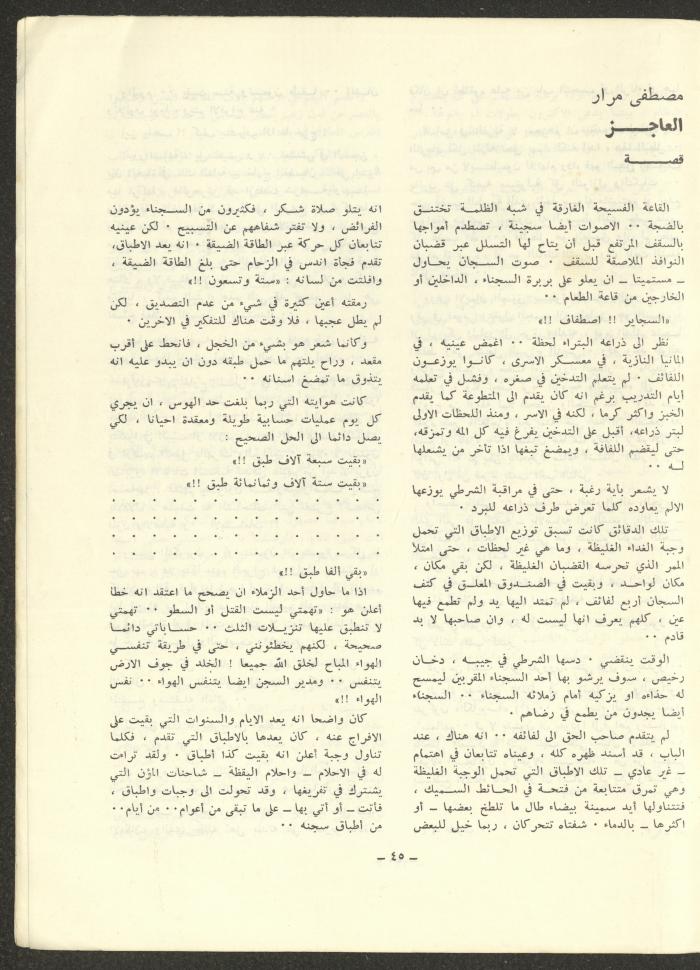 مصطفى مرار
العاجـــــز
قصـــــة
القاعة الفسيحة الغارقة في شبه الظلمـة تختنـق
بالضجة ٠٠ الاصوات أيضا سجينة ، تصطدم أمواجها
بالسقف المرتفع قبل أن يتاح لها التسلل عبر قضبان
النوافذ الملاصقة للسقف ٠ صوت السـجان يحـاول
ـ مستميتا ـ ان يعلو على بربرة السجناء ، الداخلين أو
الخارجين من قاعة الطعام ٠٠
«السجاير !! اصطفاف !!»
نظر الى ذراعه البتراء لحظة ٠٠ اغمض عينيه ، في
المانيا النازية ، في معسـكر الاسرى ، كانـوا يوزعـون
اللفائف ٠ لم يتعلم التدخين في صغره ، وفشل في تعلمه
أيام التدريب برغم انه كان يقدم الى المتطوعة كما يقدم
الخبز واكثر كرما ، لكنه في الاسر ، ومنذ اللحظات الاولى
لبتر ذراعه، أقبل على التدخين يفرغ فيه كل المه وتمزقه،
حتى ليقضم اللفافة ، ويمضغ تبغها اذا تأخر من يشعلها
لـه ٠٠
لا يشعر باية رغبة ، حتى في مراقبة الشرطي يوزعها
الالم يعاوده كلما تعرض طرف ذراعه للبرد ٠
تلك الدقائق كانت تسبق توزيع الاطباق التي تحمل
وجبة الغداء الغليظة ، وما هي غير لحظات ، حتى امتلأ
الممر الذي تحرسه القضبان الغليظة ، لكن بقي مكان ،
مكان لواحـد ، وبقيت في الصنـدوق المعلـق في كتف
السجان أربع لفائف ، لم تمتد اليها يد ولم تطمع فيها
عين ، كلهم يعرف انها ليست له ، وان صاحبها لا بد
قادم ٠٠
الوقت ينقضي ٠ دسها الشرطي في جيبـه ، دخـان
رخيص ، سوف يرشو بها أحد السجناء المقربين ليمسح
له حذاءه او يزكيه أمام زملائه السجناء ٠٠ السجناء
أيضا يجدون من يطمع في رضاهم ٠
لم يتقدم صاحب الحق الى لفائفه ٠٠ انه هناك ، عند
الباب ، قد أسند ظهره كله ، وعيناه تتابعان في اهتمام
ـ غير عادي ـ تلك الاطباق التي تحمل الوجبة الغليظة
وهي تمرق متتابعة من فتحـة في الحـائط السـميك ،
فتتناولها أيد سمينة بيضاء طال ما تلطخ بعضها ـ أو
اكثرها ـ بالدماء ٠ شفتاه تتحركان ، ربما خيل للبعض
انه يتلو صلاة شـكر ، فكثيرون من السـجناء يؤدون
الفرائض ، ولا تفتر شفاههم عن التسبيح ٠ لكن عينيه
تتابعان كل حركة عبر الطاقة الضيقة ٠ انه يعد الاطباق،
تقدم فجأة اندس في الزحام حتى بلغ الطاقة الضيقة ،
وافلتت من لسانه : «ستة وتسعون !!»
رمقته أعين كثيرة في شيء من عدم التصديق ، لكن
لم يطل عجبها ، فلا وقت هناك للتفكير في الاخرين ٠
وكأنما شعر هو بشيء من الخجل ، فانحط على أقرب
مقعد ، وراح يلتهم ما حمل طبقه دون ان يبدو عليه انه
يتذوق ما تمضغ اسنانه ٠٠
كانت هوايته التي ربما بلغت حد الهوس ، ان يجري
كل يوم عمليات حسابية طويلة ومعقدة احيانا ، لكي
يصل دائما الى الحل الصحيح :
«بقيت سبعة آلاف طبق !!»
«بقيت ستة آلاف وثمانمائة طبق !!»
٠ ٠ ٠ ٠ ٠ ٠ ٠ ٠ ٠ ٠ ٠ ٠ ٠ ٠
٠ ٠ ٠ ٠ ٠ ٠ ٠ ٠ ٠ ٠ ٠ ٠ ٠ ٠
٠ ٠ ٠ ٠ ٠ ٠ ٠ ٠ ٠ ٠ ٠ ٠ ٠ ٠
٠ ٠ ٠ ٠ ٠ ٠ ٠ ٠ ٠ ٠ ٠ ٠ ٠ ٠
«بقي ألفا طبق !!»
اذا ما حاول أحد الزملاء ان يصحح ما اعتقد انه خطأ
أعلن هو : «تهمتي ليست القتل أو السطو ٠٠ تهمتي
لا تنطبق عليها تنزيـلات الثلث ٠٠ حسـاباتي دائمـا
صحيحة ، لكنهم يخطئونني ، حتى في طريقة تنفسـي
الهواء المباح لخلق الله جميعا ! الخلد في جوف الارض
يتنفس ٠٠ ومدير السجن ايضا يتنفس الهواء ٠٠ نفس
الهواء !!»
كان واضحا انه يعد الايام والسنوات التي بقيت على
الافراج عنه ، كان يعدها بالاطباق التي تقدم ، فكلما
تناول وجبة أعلن انه بقيت كذا أطباق ٠ ولقد تراءت
له في الاحلام ـ واحلام اليقظة ـ شاحنات المؤن التي
يشترك في تفريغها ، وقد تحولت الى وجبات واطباق ،
فأتت ـ أو أتي بها ـ على ما تبقى من أعوام٠٠ من أيام٠٠
من أطباق سجنه ٠٠
ـ ٤٥ ـ